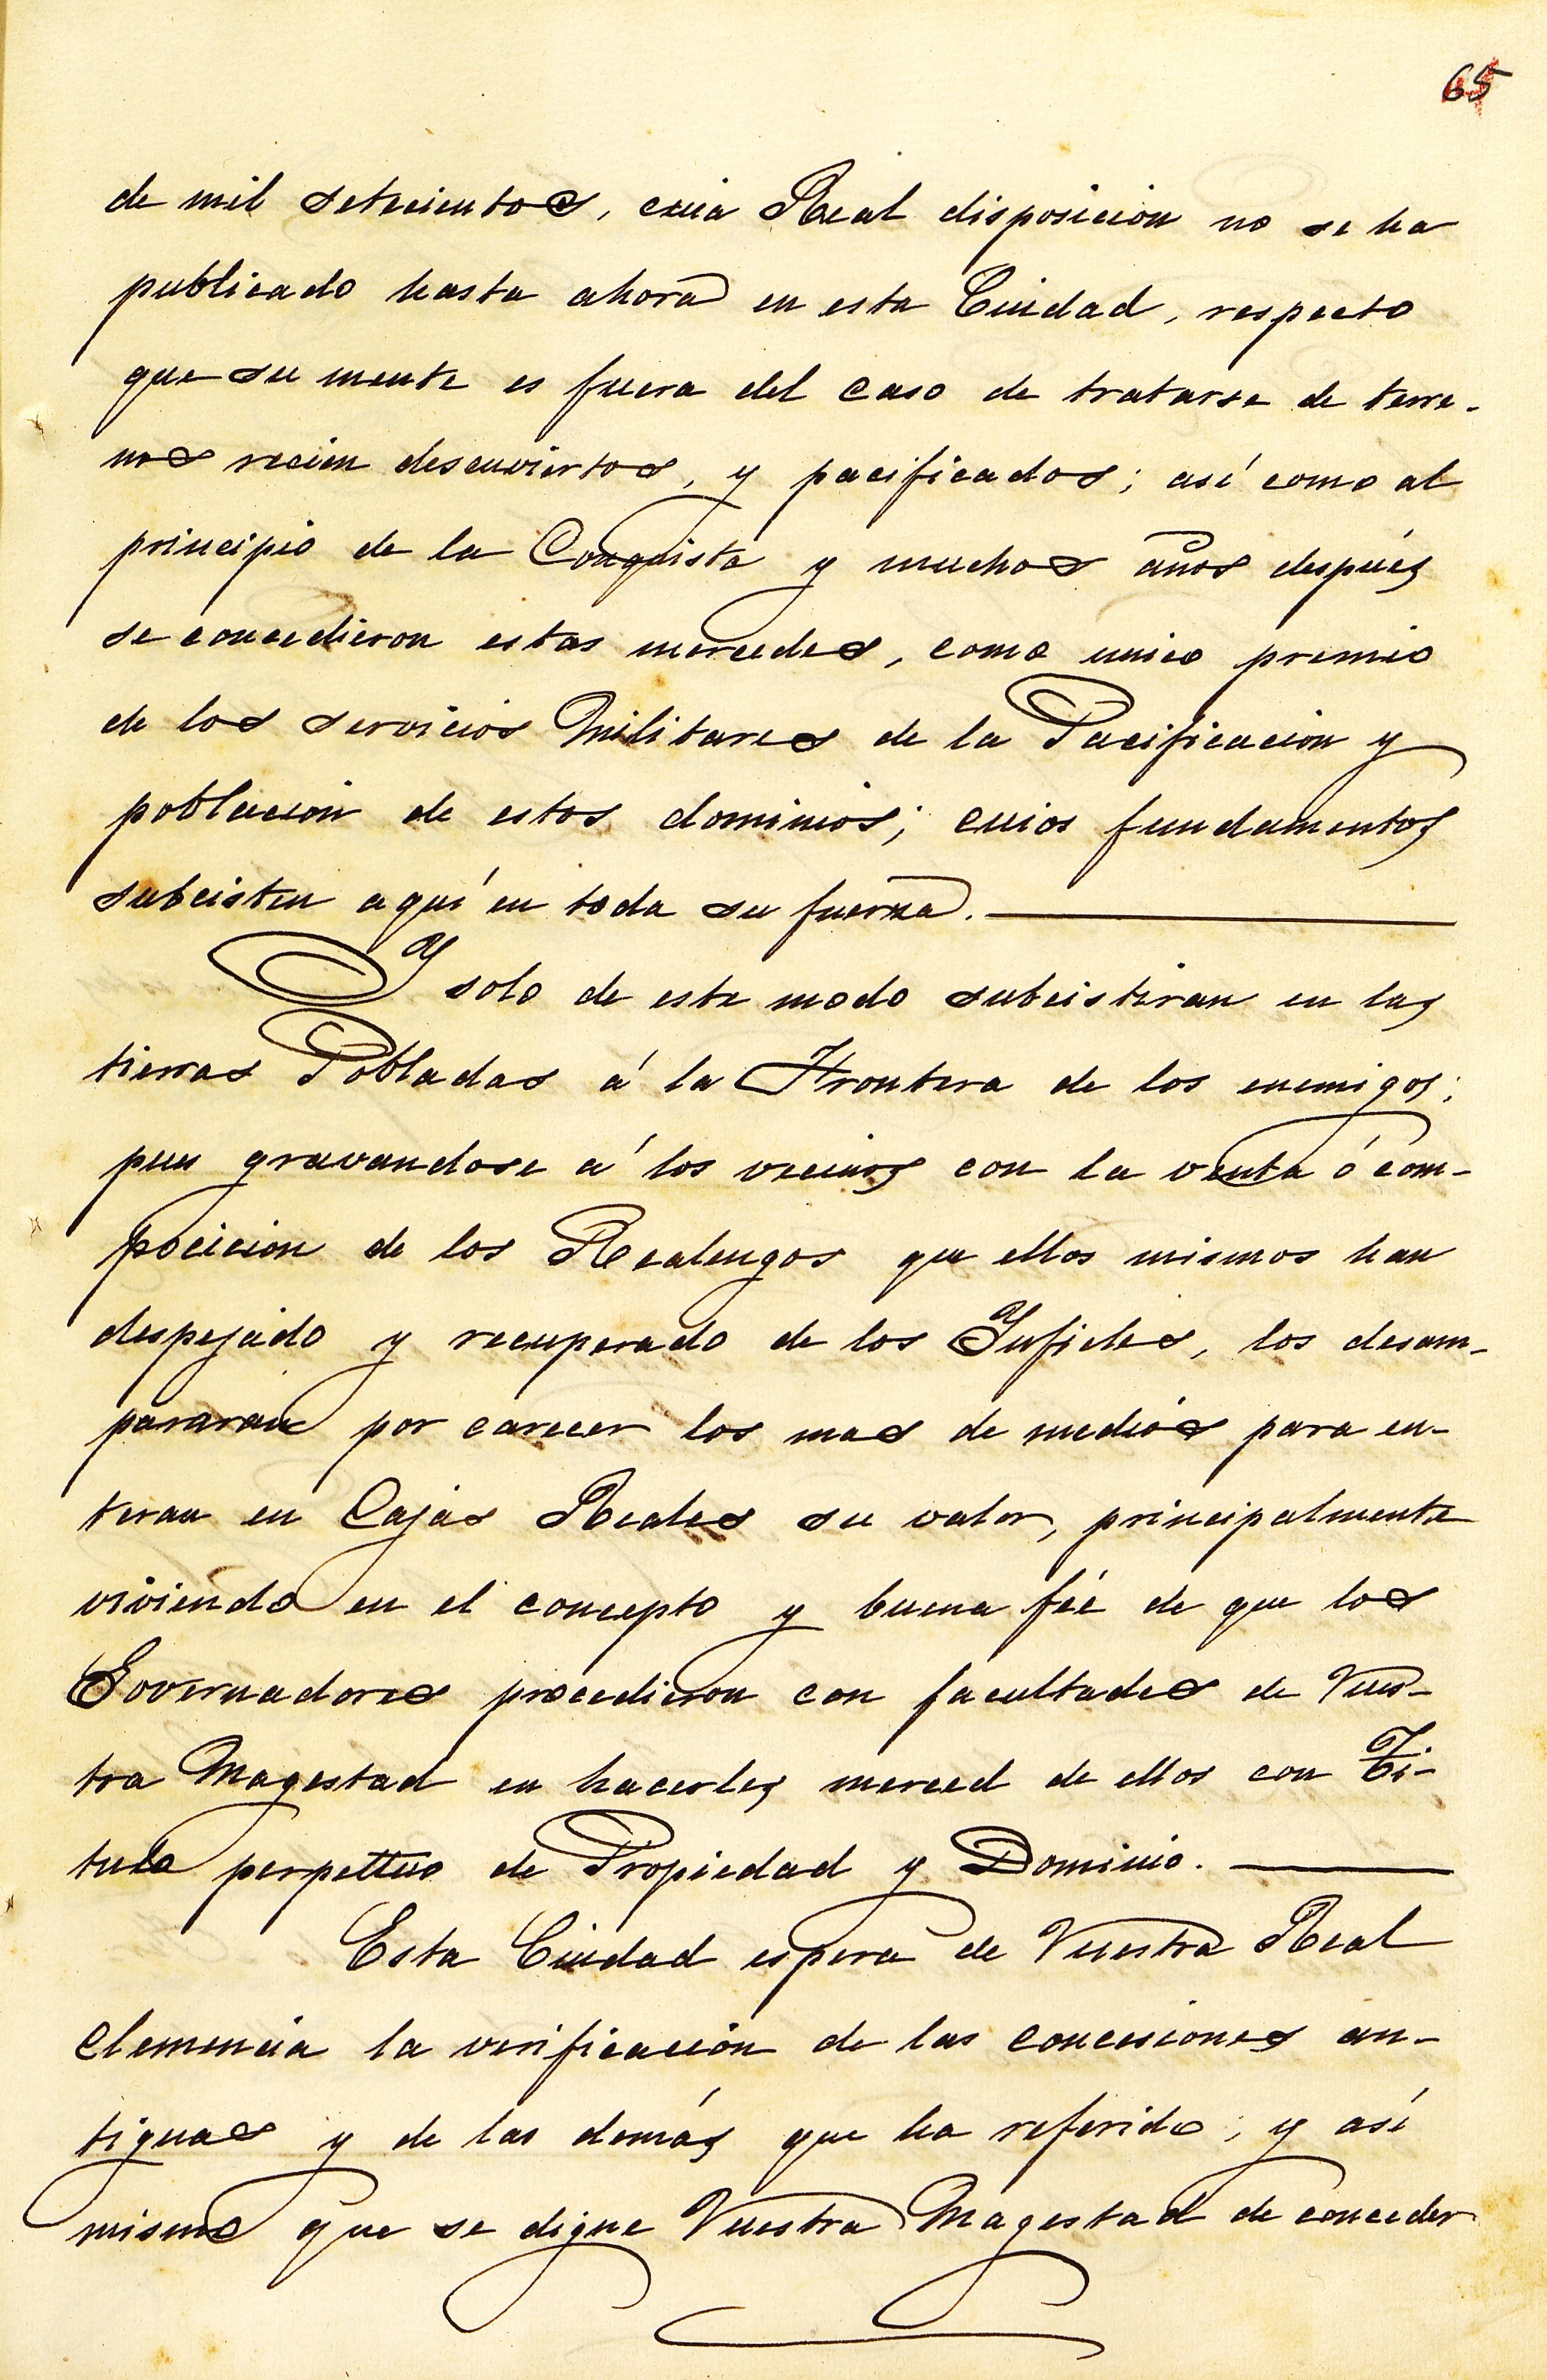 65
de mil setecientos, cuia Real disposicion no se ha
publicado hasta ahora en esta Ciudad, respecto
que su mente es fuera del caso de tratarse de terre-
nos recien descuviertos, y pacificados; asi como al
principio de la Conquista y muchos años después
se concedieron estas mercedes, como unico premio
de los servicios Militares de la Pacificacion y
poblacion de estos dominios; cuios fundamentos
subcisten aquí en toda su fuerza.
Y solo de este modo subcistiran en las
tierras Pobladas á la Frontera de los enemigos;
pues gravandose á los vecinos con la venta ó com-
pocicion de los Realengos que ellos mismos han
despejado y recuperado de los Ynfieles, los desam-
pararan por carecer los mas de medios para en-
terar en Cajas Reales su valor, principalmente
viviendo en el concepto y buena fée de que los
Governadores procedieron con facultades de Vues-
tra Magestad en hacerles merced de ellos con Tí-
tulo perpettuo de Propiedad y Dominio.
Esta Ciudad espera de Vuestra Real
Clemencia la verificacion de las concesiones an-
tiguas y de las demás que ha referido; y asi
mismo que se digne Vuestra Magestad de conceder